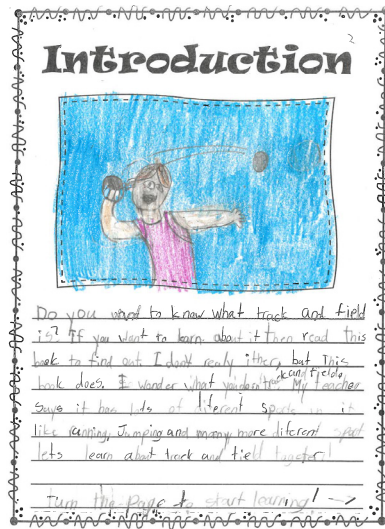 2
Introduction
Do you want to know what track and field
is? if you want to learn about it then read this
book to find out I dont really ither, but this
book does. I wonder what
track and field. My teacher
says it has lots of diferent sports in it
like running, Jumping and many more diferent sport
lets learn about track and field together!
Turn the page to start learning! →